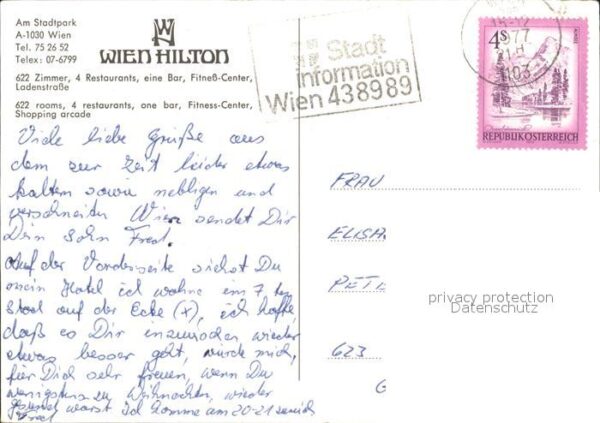 Am Stadtpark
A-1030 Wien
Tel. 75 26 52
Telex: 07-6799
WIEN HILTON
622 Zimmer, 4 Restaurants, eine Bar, Fitneß-Center,
Ladenstraße
622 rooms, 4 restaurants, one bar, Fitness-Center,
Shopping arcade
Stadt
information
Wien 438989
4S
REPUBLIK ÖSTERREICH
Viele liebe Grüße aus
dem zur Zeit leider etwas
kalten sowie nebligen und
verschneiten Wien sendet Dir
Dein Sohn Fred.
Auf der Vorderseite siehst Du
mein Hotel ich wohne im 7 ten
Stock auf der Ecke (X), ich hoffe
daß es Dir inzwischen wieder
etwas besser geht, würde mich
für Dich sehr freuen, wenn Du
wenigstens zu Weihnachten wieder
gesund wärst Ich komme am 20-21 zurück
Fred
FRAU
ELISA
PETE
623
G
privacy protection
Datenschutz